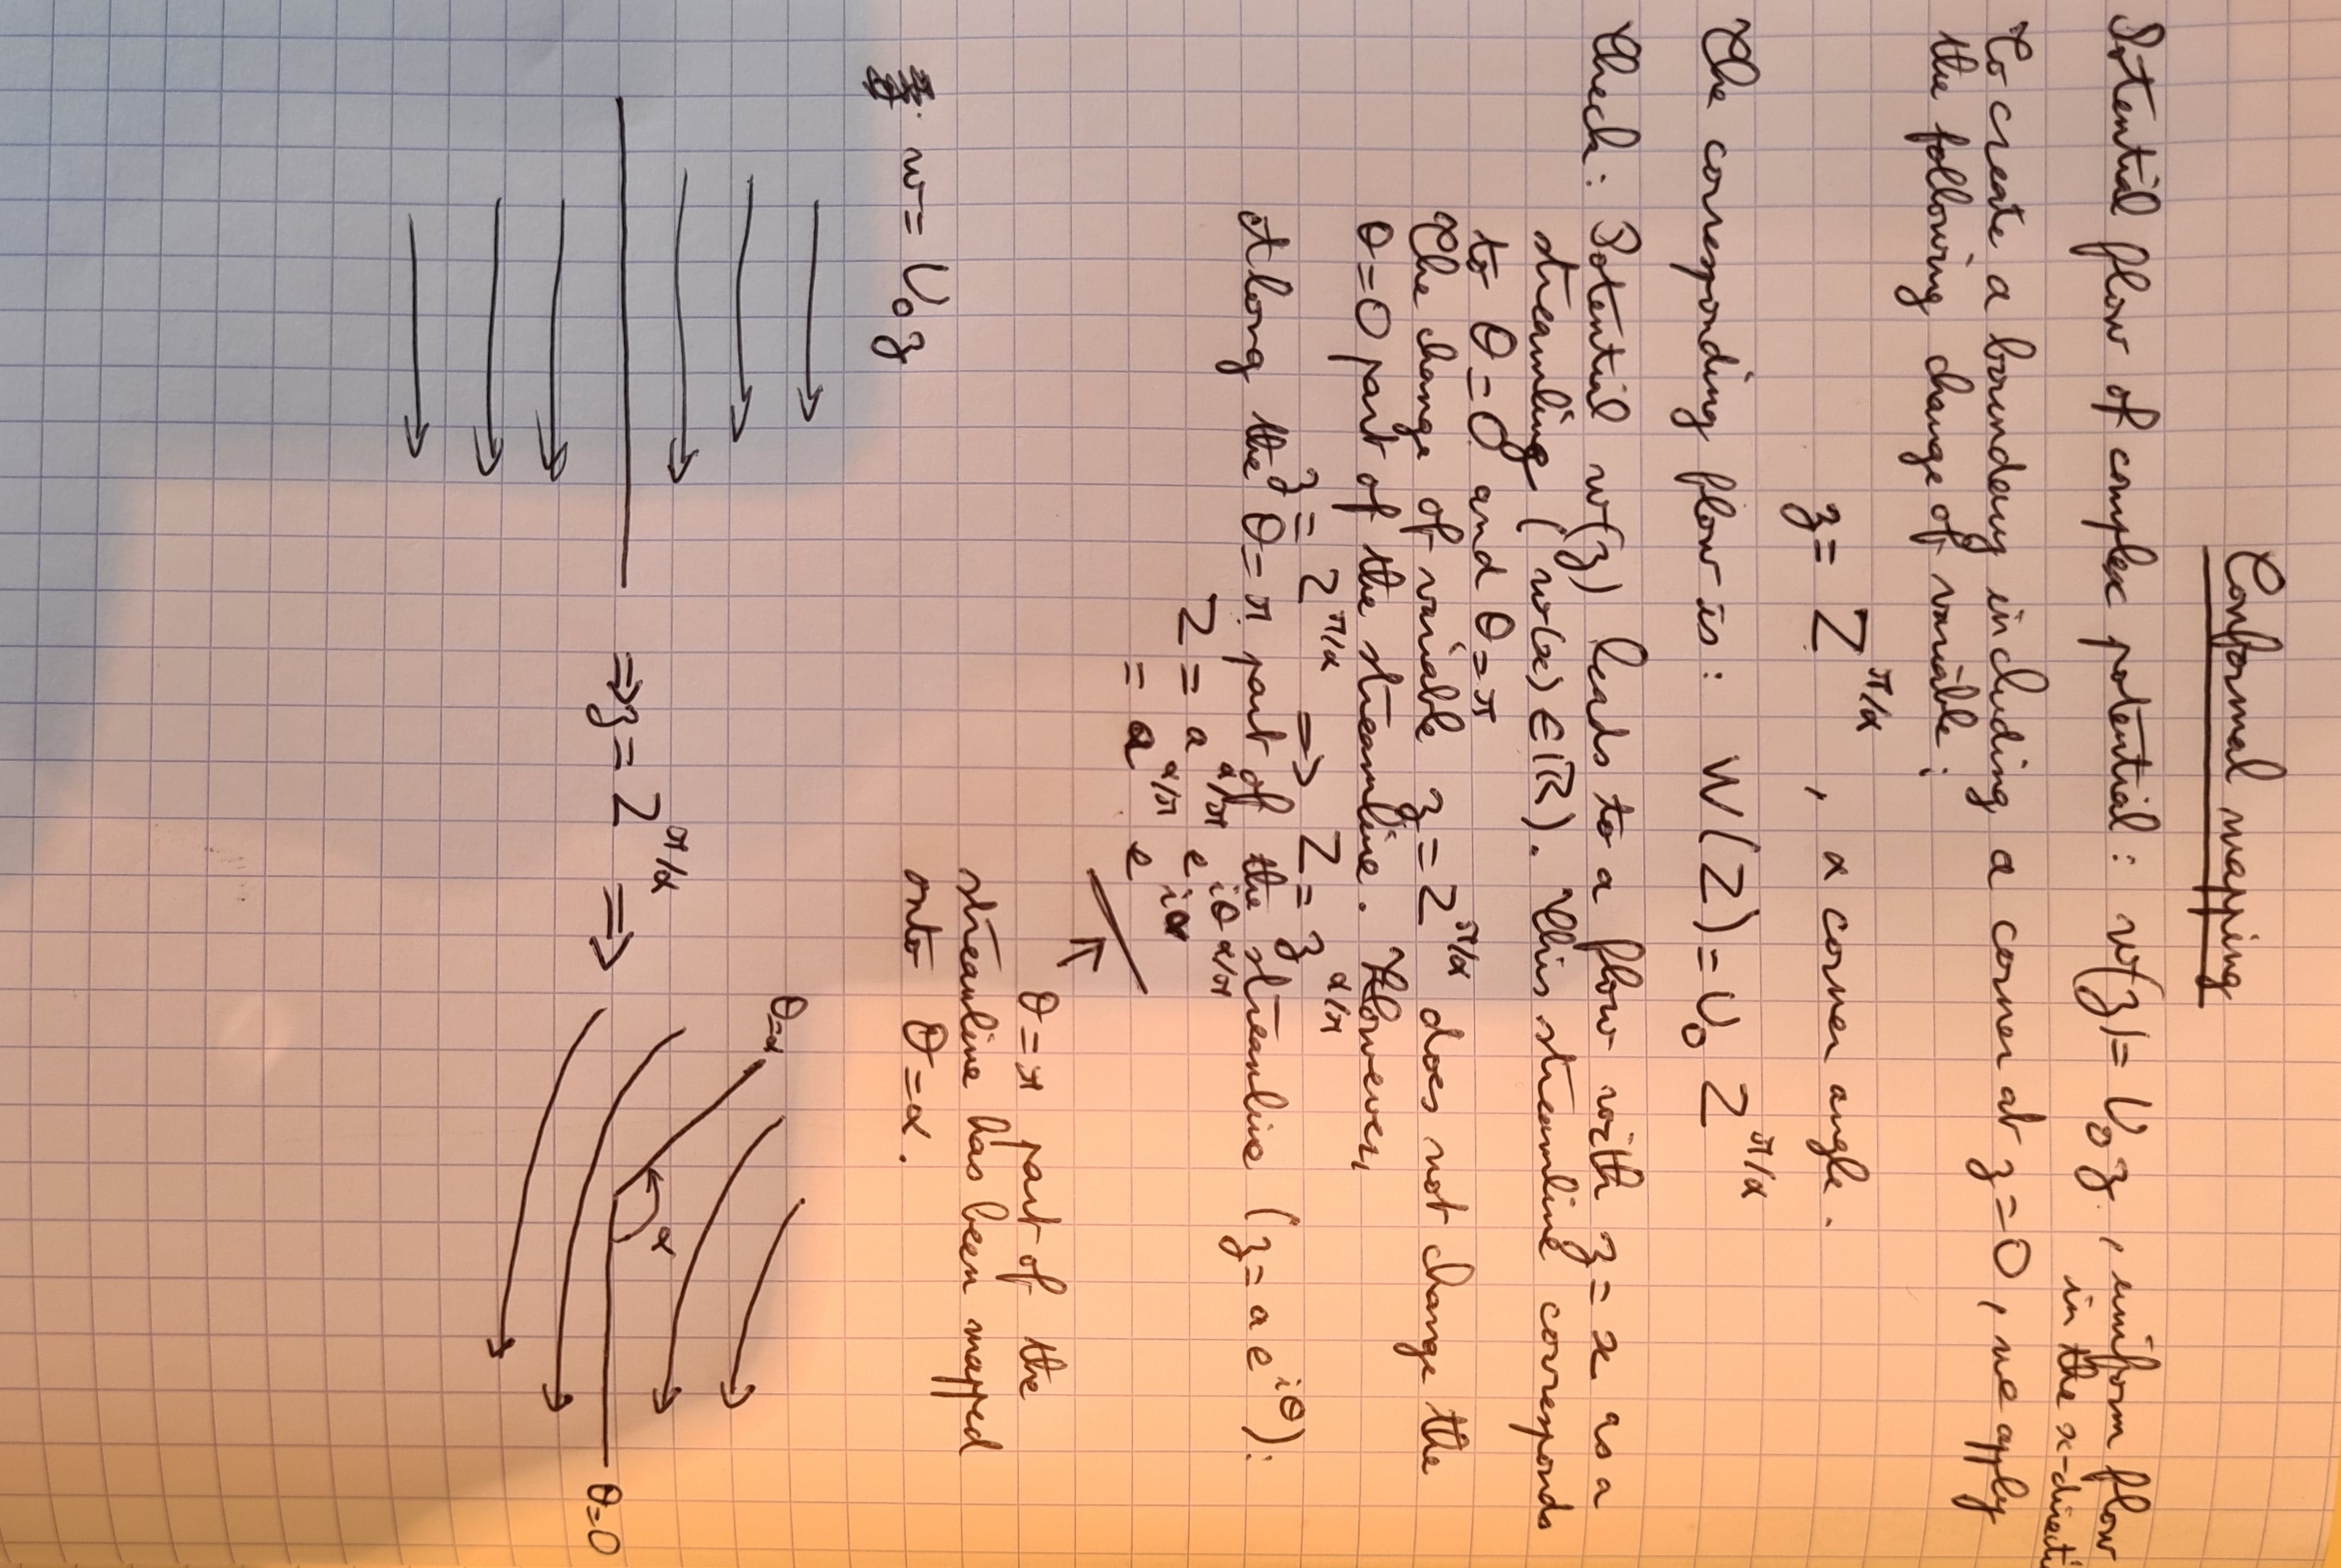 Conformal mapping
Potential flow of complex potential: w(z) = U₀z, uniform flow
in the x-directi
To create a boundary including a corner at z=0, we apply
the following change of variable:
z = Z^π/α , α corner angle.
The corresponding flow is: W(Z) = U₀ Z^π/α
Check: Potential w(z) leads to a flow with z = x as a
streamline (w(x) ∈ ℝ). This streamline corresponds
to θ=0 and θ=π
The change of variable z = Z^π/α does not change the
θ=0 part of the streamline. However,
z = Z^π/α ⇒ Z = z^α/π
Along the θ=π part of the streamline (z = a e^iθ):
Z = a^α/π e^iθα/π
= a^α/π e^iα
↑
θ=π part of the
streamline has been mapped
onto θ=α.
w = U₀z
⇒ z = Z^π/α ⇒
θ=α
α
θ=0